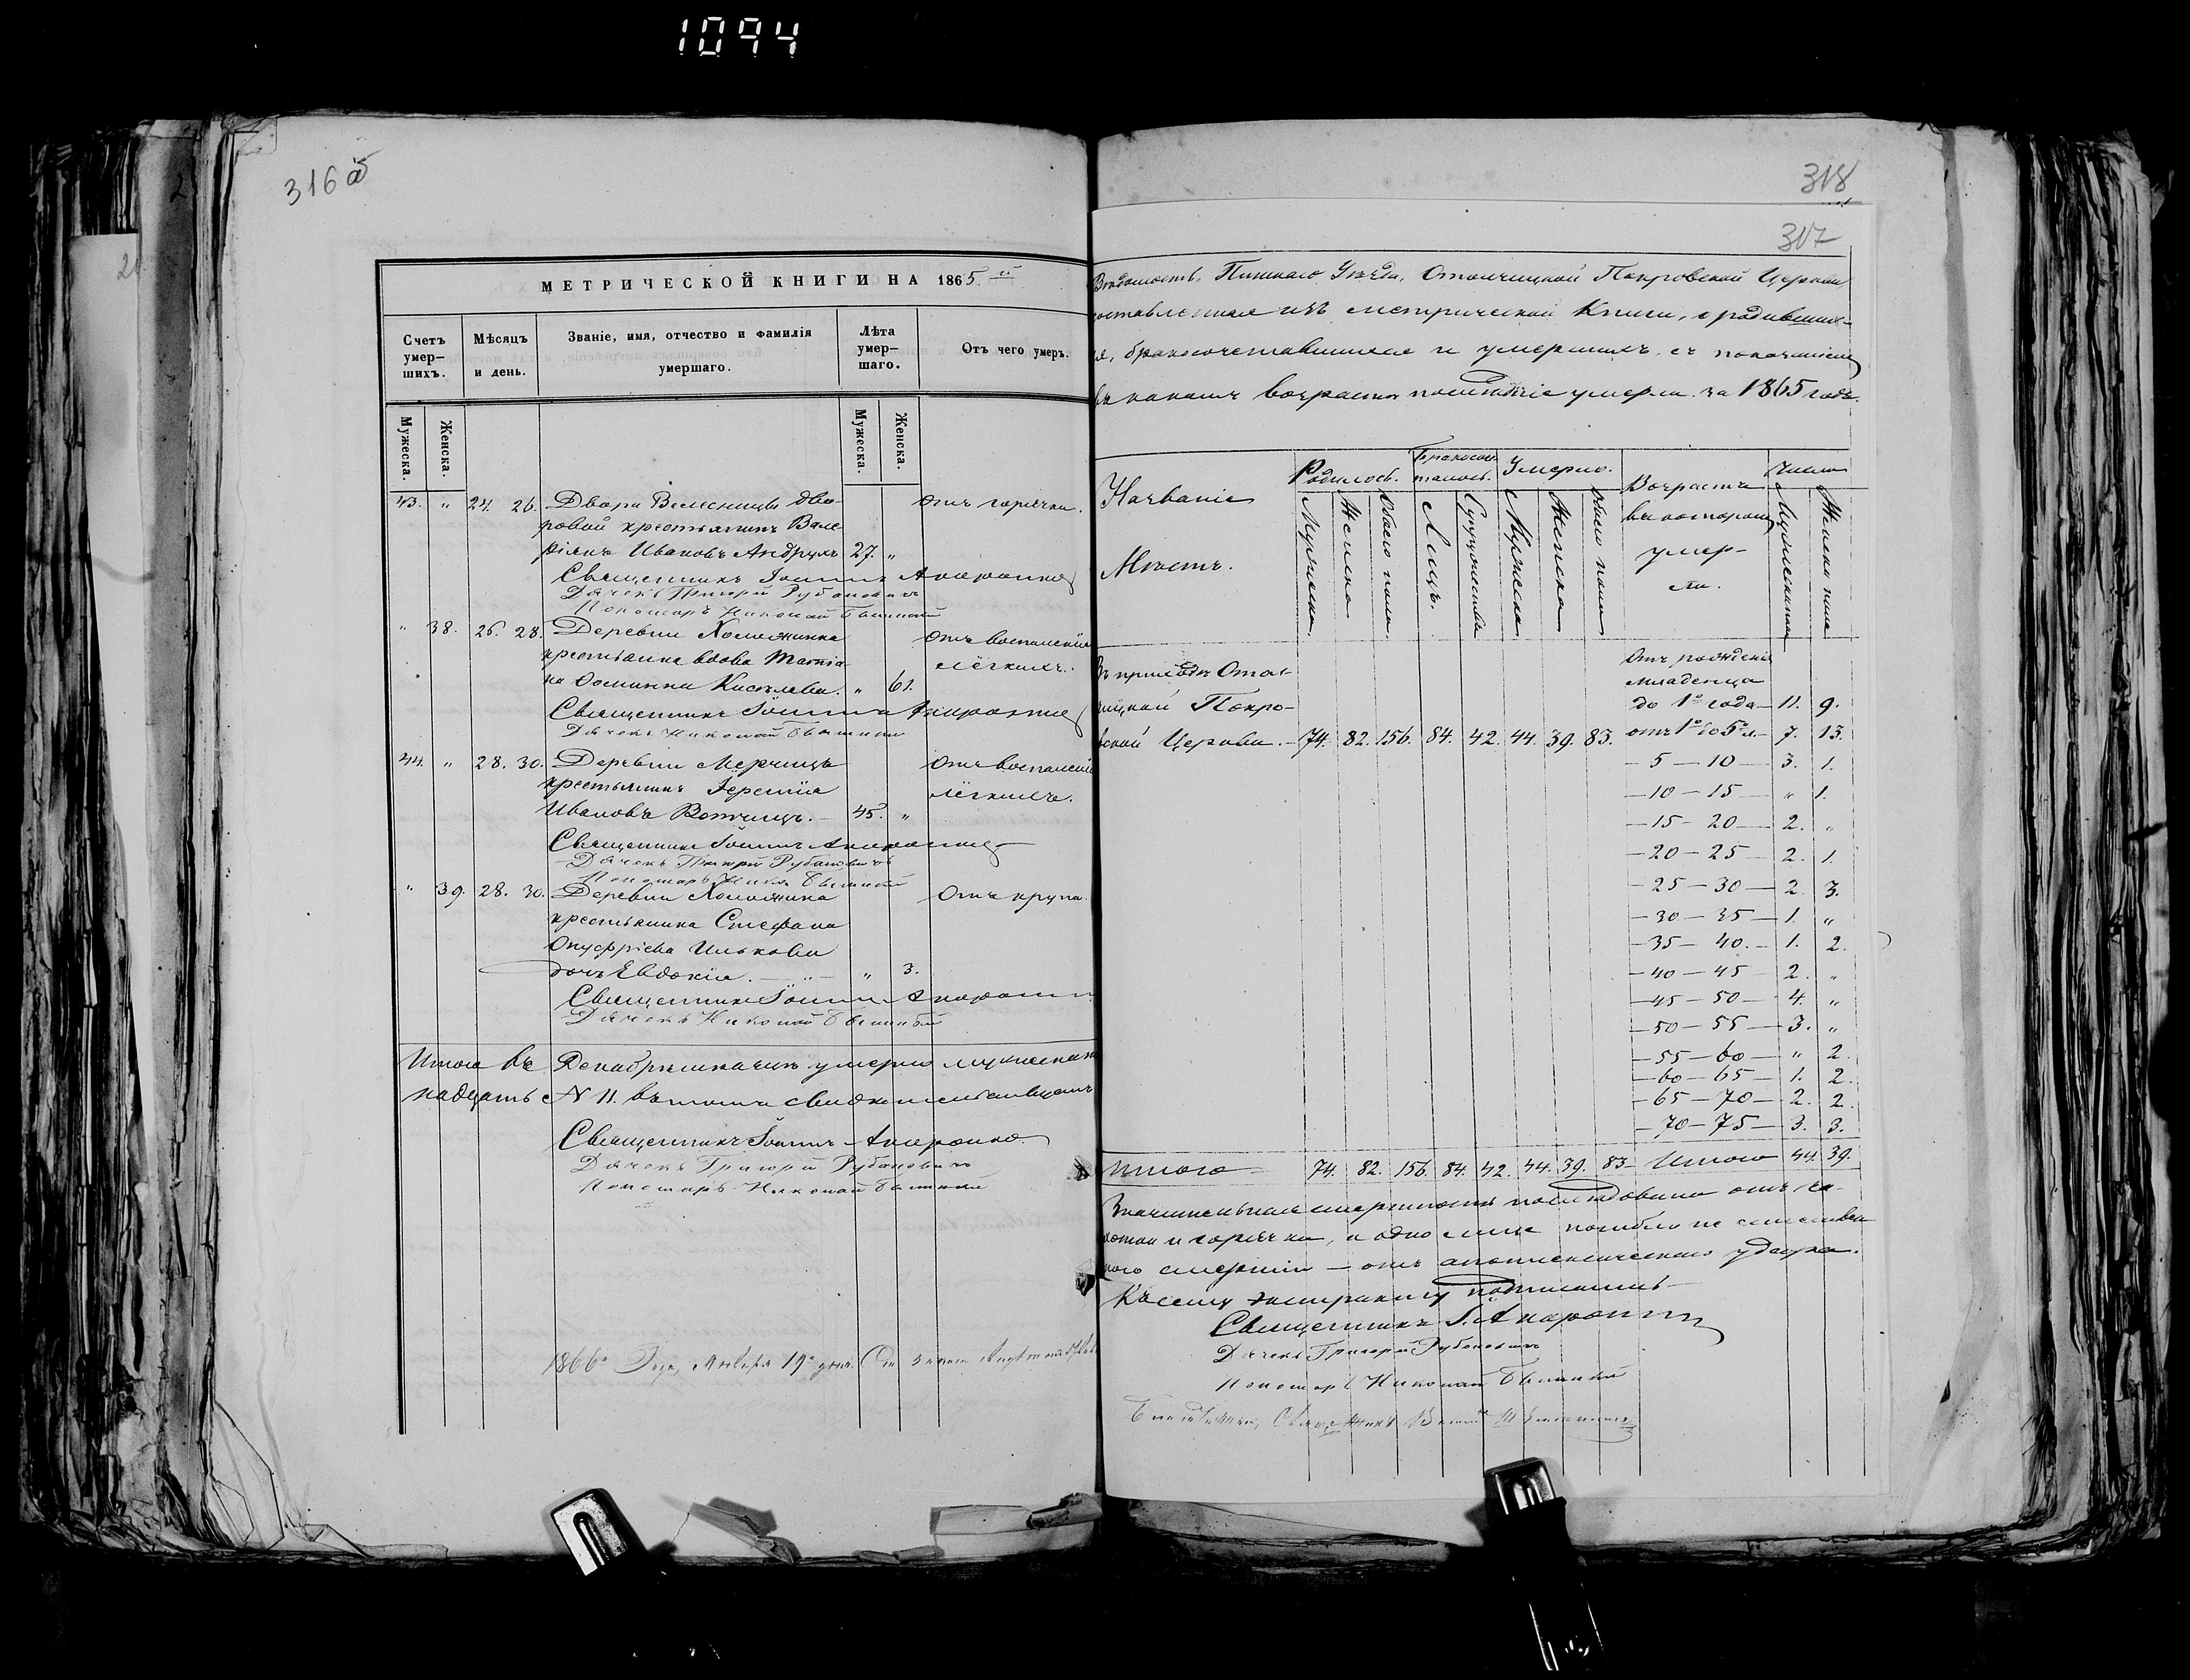 1094
316 об
МЕТРИЧЕСКОЙ КНИГИ НА 1865
Счетъ умер-шихъ.
Мѣсяцъ и день.
Званіе, имя, отчество и фамилія умершаго.
Лѣта умер-шаго.
Отъ чего умеръ.
Мужеска.
Женска.
Мужеска.
Женска.
43. " 24. 26. Двора Велесницы дво- Отъ горячки.
ровой крестьянинъ Вале-
ріянъ Ивановъ Андрухъ 27. "
Священникъ Іоаннъ
Дячекъ Григорій Рубановичъ
Пономарь Николай
" 38. 26. 28. Деревни Хоможинка Отъ воспаленія
крестьянка вдова Татія- лёгкихъ.
на Киселева. " 61.
Священникъ Іоаннъ
Дячекъ Николай
44. " 28. 30. Деревни Мерчицъ Отъ воспаленія
крестьянинъ Іеремія лёгкихъ.
Ивановъ Вотчицъ. 45. "
Священникъ Іоаннъ
Дячекъ Григорій Рубановичъ
Пономарь Никол.
" 39. 28. 30. Деревни Хоможинка Отъ крупа.
крестьянина Стефана
Онуфріева Илькова
дочь Евдокія. " 3.
Священникъ Іоаннъ
Дячекъ Николай
Итого въ Декабрѣ мѣсяцѣ умерло мужеска
надцать № 11. въ томъ свидѣтельствуемъ
Священникъ Іоаннъ
Дячекъ Григорій Рубановичъ
Пономарь Николай
1866о Года, Января 19о дня.
318
317
Вѣдомость, Пинскаго Уѣзда, Отолчицкой Покровской Церкви
составленная изъ метрической Книги, о родивших-
ся, бракосочетавшихся и умершихъ, съ показаніемъ
въ какомъ возрастѣ послѣдніе умерли за 1865 годъ.
Названіе Мѣстъ.
Родилось.
Мужеска
Женска
Обоего пола
Бракосоче-талось.
Лицъ.
Супружествъ
Умерло.
Мужеска
Женска
Обоего пола
Возрастъ въ которомъ умер-ли.
Число
Мужеска пола
Женска пола
Въ приходѣ Отол-
чицкой Покро-
вской Церкви. 74. 82. 156. 84. 42. 44. 39. 83.
Отъ рожденія
младенца
до 1о года 11. 9.
отъ 1о до 5 л. 7. 13.
5 — 10 3. 1.
10 — 15 " 1.
15 — 20 2. "
20 — 25 2. 1.
25 — 30 2. 3.
30 — 35 1. "
35 — 40. 1. 2.
40 — 45 2. "
45 — 50 4. "
50 — 55 3. "
55 — 60 " 2.
60 — 65 1. 2.
65 — 70 2. 2.
70 — 75 3. 3.
Итого 74. 82. 156. 84. 42. 44. 39. 83 Итого 44. 39.
Значительная смертность послѣдовала отъ ча-
хотки и горячки, и одно лице погибло не естествен
ною смертію — отъ апоплексическаго удара.
Къ сему экстракту подписались
Священникъ І.
Дячекъ Григорій Рубановичъ
Пономарь Николай
Священникъ